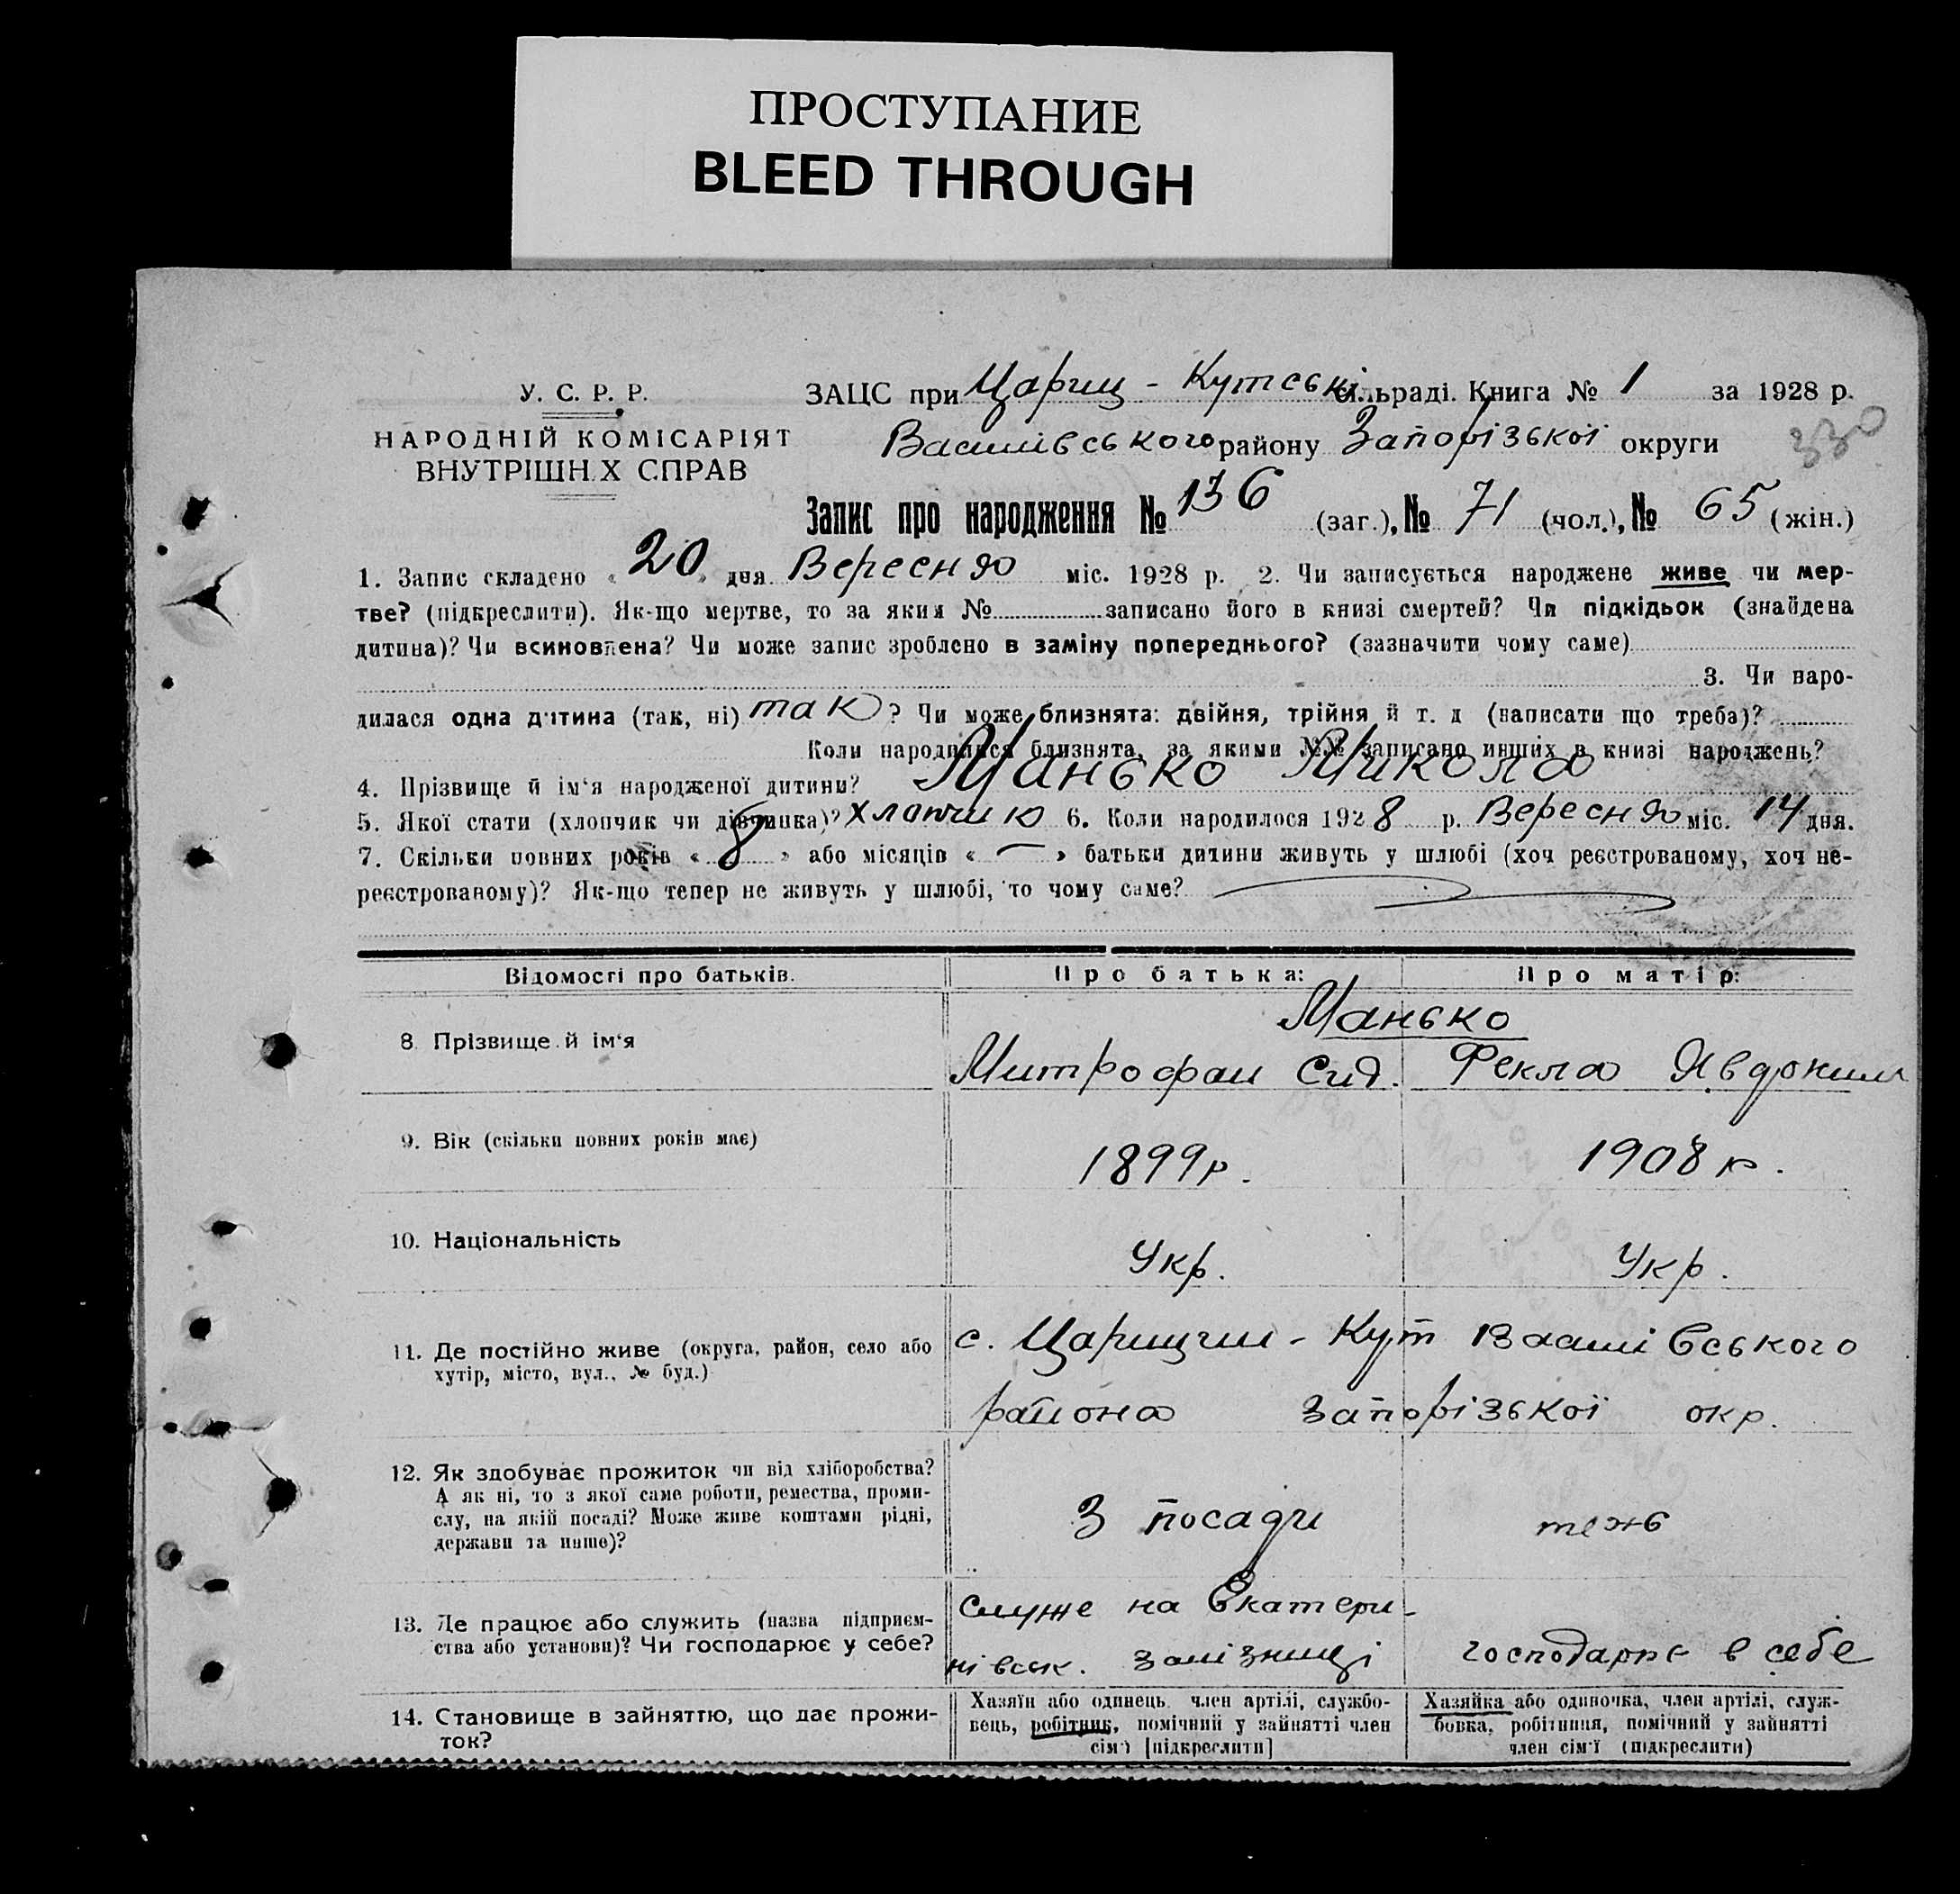 ПРОСТУПАНИЕ
BLEED THROUGH
У. С. Р. Р.
НАРОДНІЙ КОМІСАРІЯТ
ВНУТРІШН.Х СПРАВ
ЗАЦС при Цариц - Кутській сільраді. Книга № 1 за 1928 р.
Василівського району Запорізької округи
330
Запис про народження № 136 (заг.), № 71 (чол.), № 65 (жін.)
1. Запис складено « 20 » дня Вересня міс. 1928 р. 2. Чи записується народжене живе чи мер-
тве? (підкреслити). Як-що мертве, то за яким № записано його в книзі смертей? Чи підкідьок (знайдена
дитина)? Чи всиновлена? Чи може запис зроблено в заміну попереднього? (зазначити чому саме)
3. Чи наро-
дилася одна дитина (так, ні) так ? Чи може близнята: двійня, трійня й т. д (написати що треба)?
Коли народилися близнята, за якими №№ записано инших в книзі народжень?
4. Прізвище й ім'я народженої дитини? Манько Микола
5. Якої стати (хлопчик чи дівчинка)? хлопчик 6. Коли народилося 1928 р. Вересня міс. 14 дня.
7. Скільки повних років « 8 » або місяців « — » батьки дитини живуть у шлюбі (хоч реєстрованому, хоч не-
реєстрованому)? Як-що тепер не живуть у шлюбі, то чому саме?
Відомості про батьків. Про батька: Про матір:
Манько
8. Прізвище й ім'я Митрофан Сид. Фекла Явдоким
9. Вік (скільки повних років має) 1899 р. 1908 р.
10. Національність Укр. Укр.
11. Де постійно живе (округа, район, село або
хутір, місто, вул., № буд.)
с. Царицин - Кут Василівського
района Запорізької окр.
12. Як здобуває прожиток чи від хліборобства?
А як ні, то з якої саме роботи, ремества, проми-
слу, на якій посаді? Може живе коштами рідні,
держави та инше)?
З посади теж
13. Де працює або служить (назва підприєм-
ства або установи)? Чи господарює у себе?
служе на Екатери-
нівськ. залізниці господарює в себе
14. Становище в зайняттю, що дає прожи-
ток?
Хазяїн або одинець, член артілі, службо-
вець, робітник, помічний у зайнятті член
сім'ї [підкреслити]
Хазяйка або одиночка, член артілі, служ-
бовка, робітниця, помічний у зайнятті
член сім'ї (підкреслити)